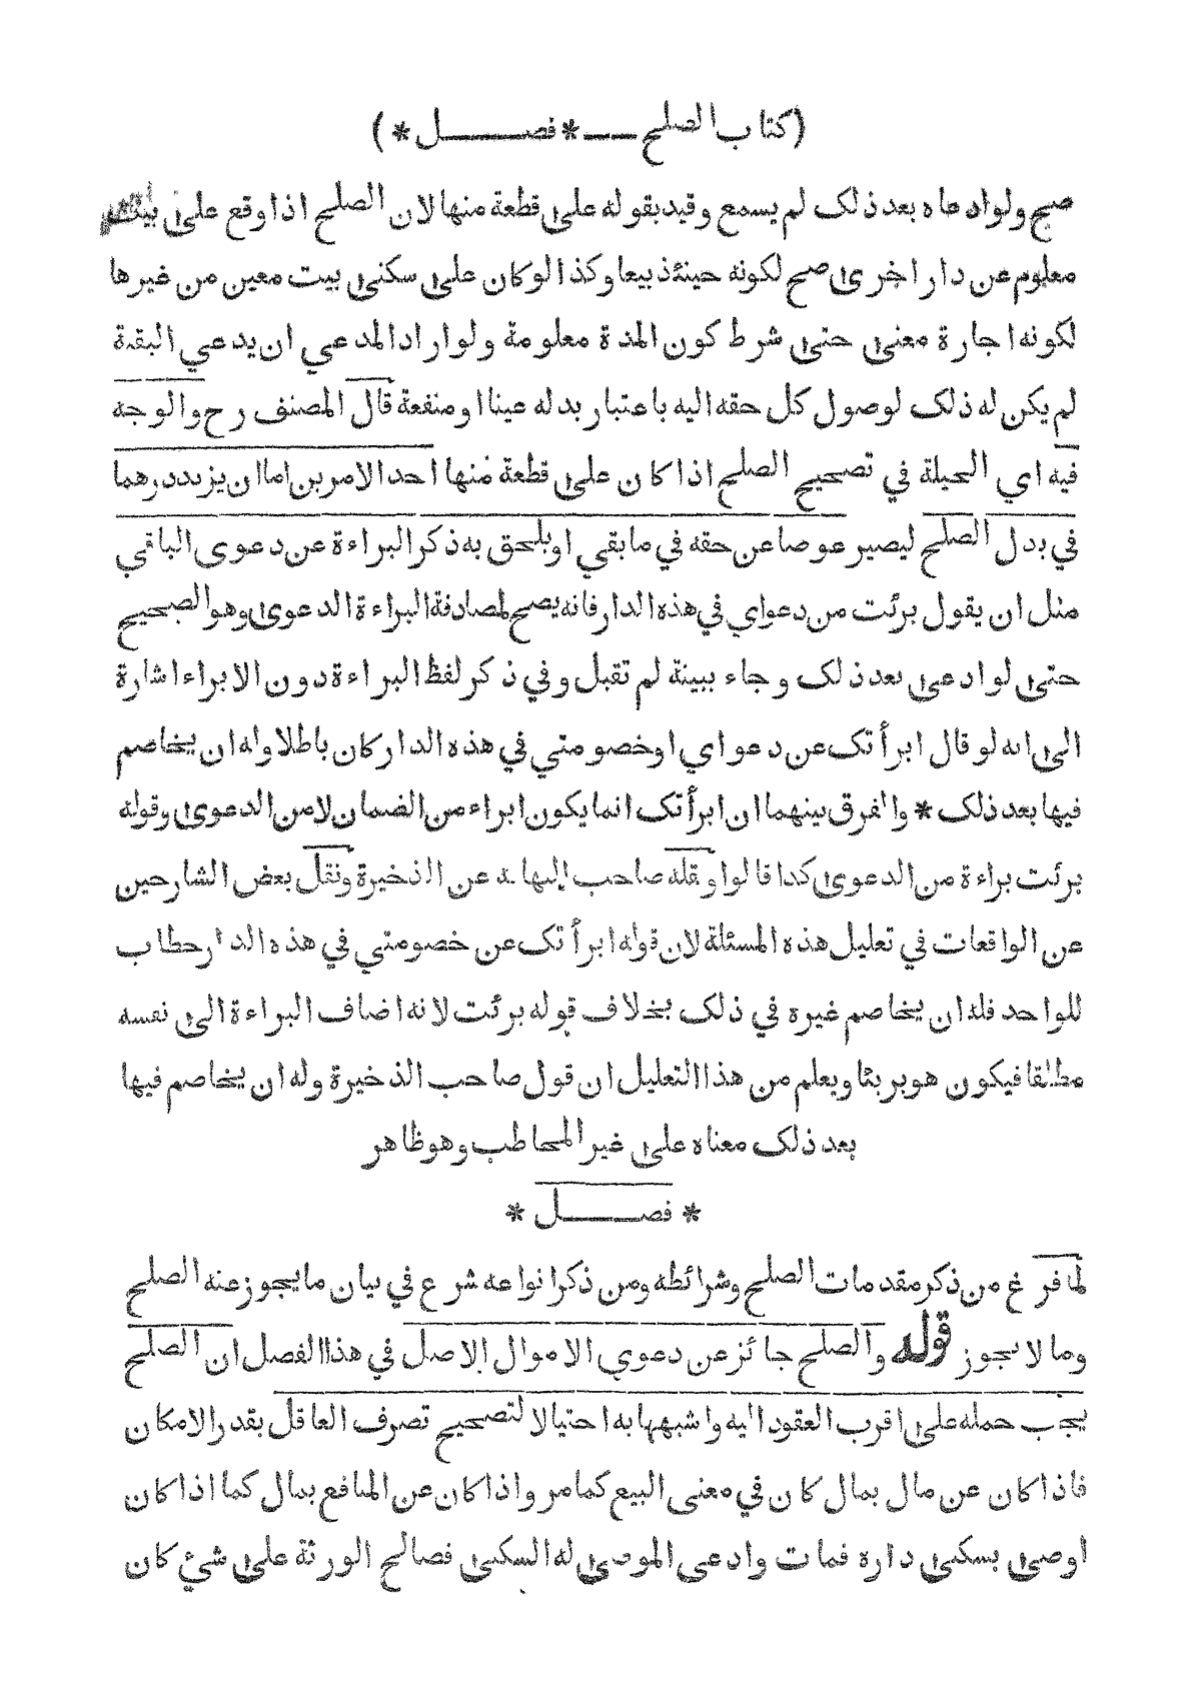 (كتاب الصلح — * فصل *)
صح ولو ادعاه بعد ذلك لم يسمع وقيد بقوله على قطعة منها لان الصلح اذا وقع على بيت
معلوم عن دار اخرى صح لكونه حينئذ بيعا وكذا لو كان على سكنى بيت معين من غيرها
لكونه اجارة معنى حتى شرط كون المدة معلومة ولو اراد المدعي ان يدعي البقية
لم يكن له ذلك لوصول كل حقه اليه باعتبار بدله عينا او منفعة قال المصنف رح والوجه
فيه اي الحيلة في تصحيح الصلح اذا كان على قطعة منها احد الامرين اما ان يزيد درهما
في بدل الصلح ليصير عوضا عن حقه في ما بقي او يلحق به ذكر البراءة عن دعوى الباقي
مثل ان يقول برئت من دعواي في هذه الدار فانه يصح لمصادفة البراءة الدعوى وهو الصحيح
حتى لو ادعى بعد ذلك وجاء ببينة لم تقبل وفي ذكر لفظ البراءة دون الابراء اشارة
الى انه لو قال ابرأتك عن دعواي او خصومتي في هذه الدار كان باطلا وله ان يخاصم
فيها بعد ذلك * والفرق بينهما ان ابرأتك انما يكون ابراء من الضمان لا من الدعوى وقوله
برئت براءة من الدعوى كذا قالوا ونقله صاحب النهاية عن الذخيرة ونقل بعض الشارحين
عن الواقعات في تعليل هذه المسئلة لان قوله ابرأتك عن خصومتي في هذه الدار خطاب
للواحد فله ان يخاصم غيره في ذلك بخلاف قوله برئت لانه اضاف البراءة الى نفسه
مطلقا فيكون هو بريئا ويعلم من هذا التعليل ان قول صاحب الذخيرة وله ان يخاصم فيها
بعد ذلك معناه على غير المخاطب وهو ظاهر
* فصل *
لما فرغ من ذكر مقدمات الصلح وشرائطه ومن ذكر انواعه شرع في بيان ما يجوز عنه الصلح
وما لا يجوز قوله والصلح جائز عن دعوى الاموال الاصل في هذا الفصل ان الصلح
يجب حمله على اقرب العقود اليه واشبهها به احتيالا لتصحيح تصرف العاقل بقدر الامكان
فاذا كان عن مال بمال كان في معنى البيع كما مر واذا كان عن المنافع بمال كما اذا كان
اوصى بسكنى داره فمات وادعى الموصى له السكنى فصالح الورثة على شيء كان